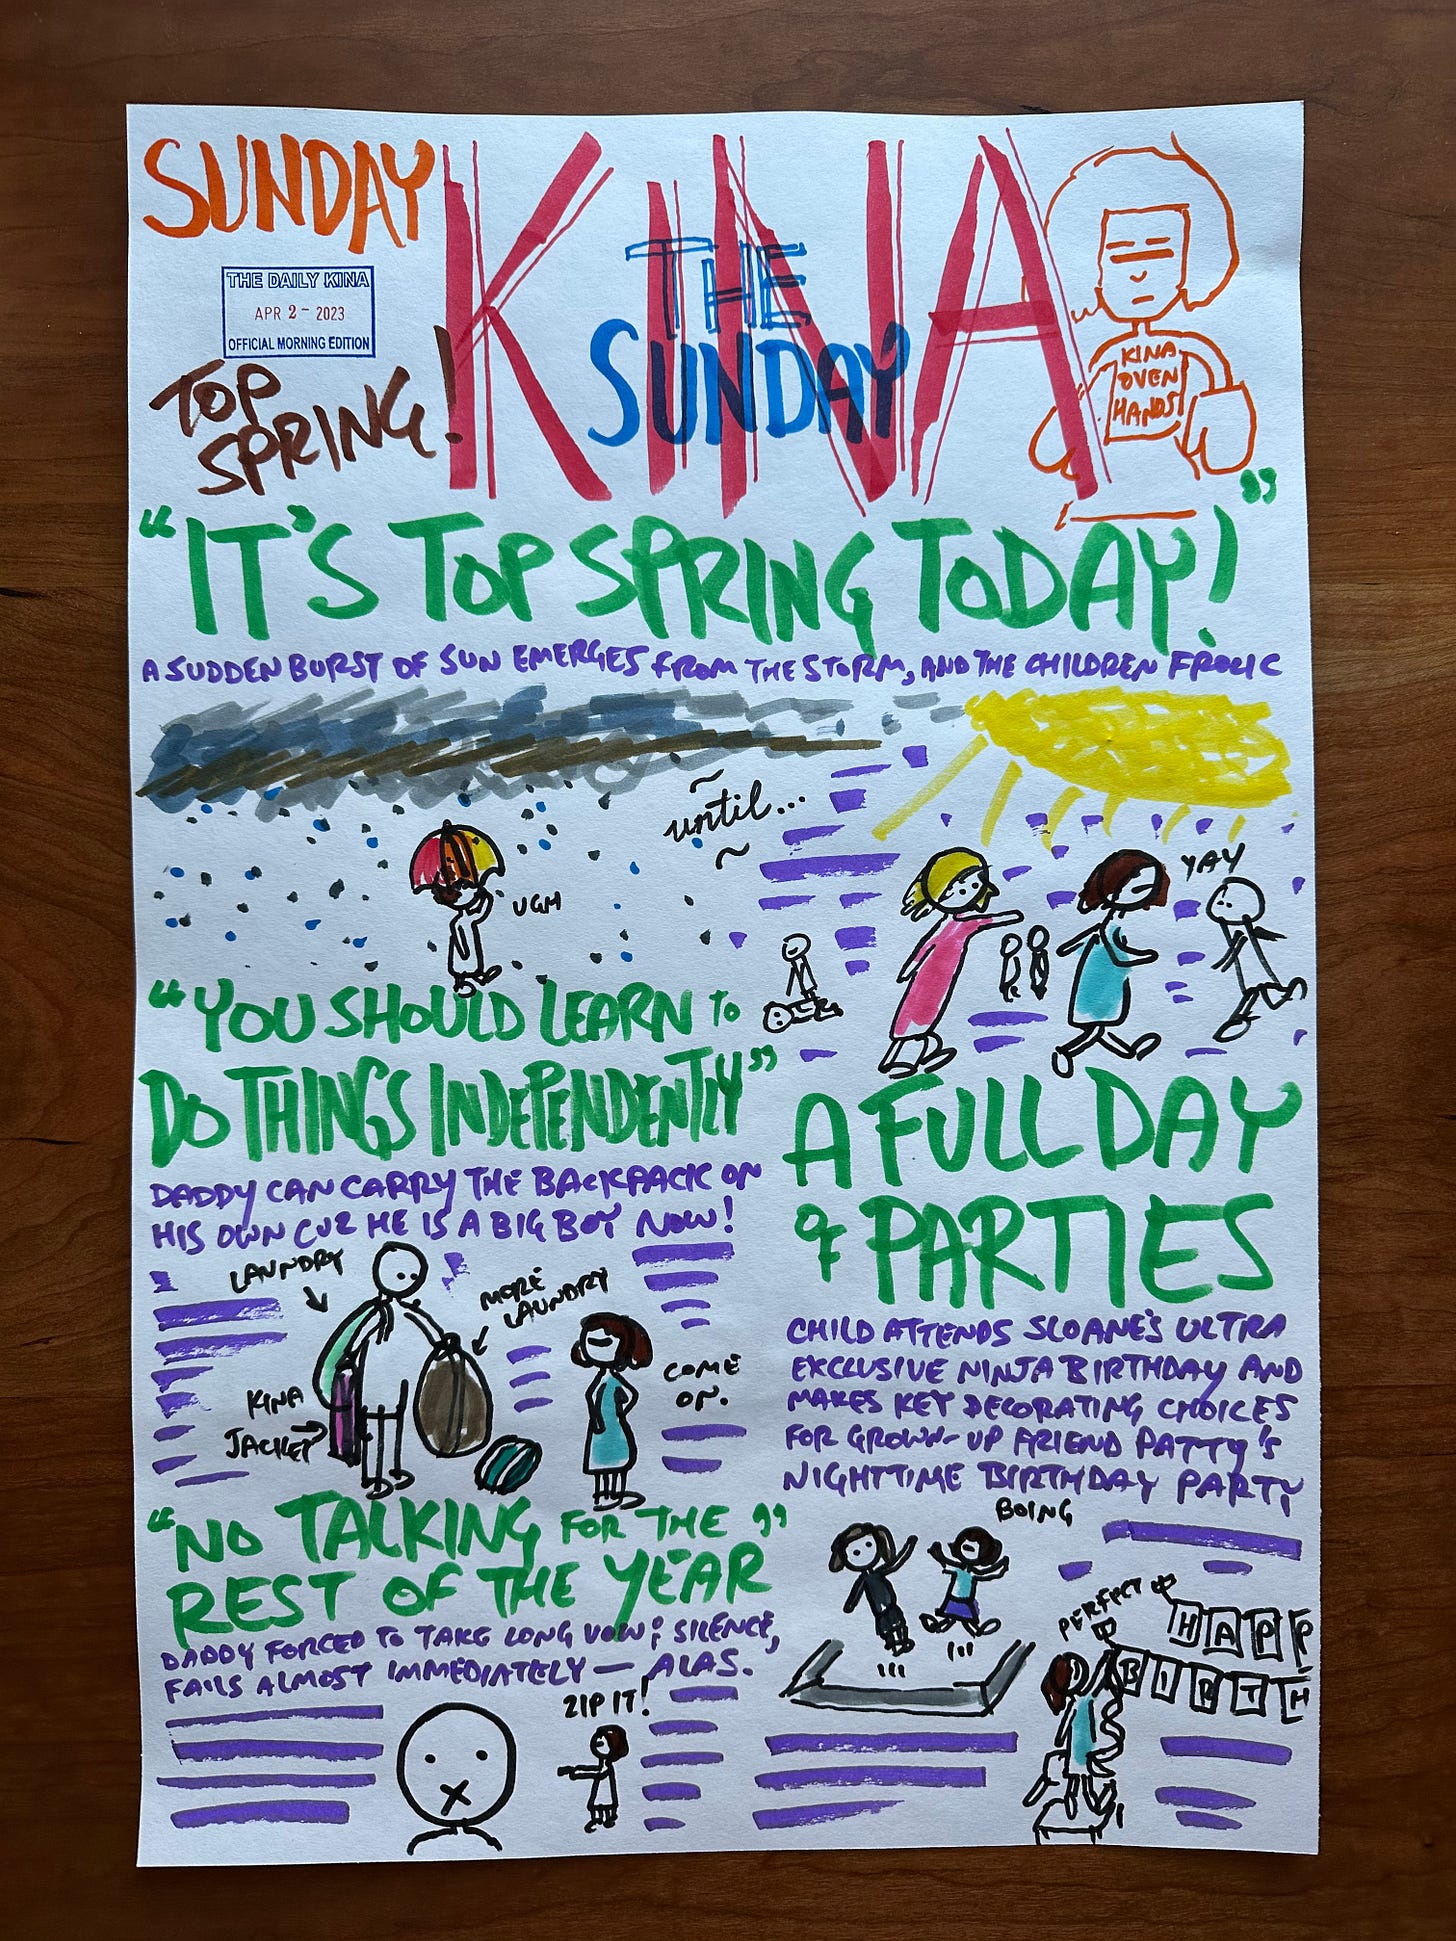 SUNDAY
KINA
THE
SUNDAY
THE DAILY KINA
APR 2 - 2023
OFFICIAL MORNING EDITION
TOP
SPRING!
KINA
OVEN
HANDS
"IT'S TOP SPRING TODAY!"
A SUDDEN BURST OF SUN EMERGES FROM THE STORM, AND THE CHILDREN FROLIC
~ until... ~
UGH
YAY
"YOU SHOULD LEARN TO
DO THINGS INDEPENDENTLY"
DADDY CAN CARRY THE BACKPACK ON
HIS OWN CUZ HE IS A BIG BOY NOW!
LAUNDRY
MORE
LAUNDRY
KINA
JACKET
COME
ON.
"NO TALKING FOR THE
REST OF THE YEAR"
DADDY FORCED TO TAKE LONG VOW OF SILENCE,
FAILS ALMOST IMMEDIATELY — ALAS.
ZIP IT!
A FULL DAY
OF PARTIES
CHILD ATTENDS SLOANE'S ULTRA
EXCLUSIVE NINJA BIRTHDAY AND
MAKES KEY DECORATING CHOICES
FOR GROWN-UP FRIEND PATTY'S
NIGHTTIME BIRTHDAY PARTY
BOING
PERFECT
HAPP
BIRTH